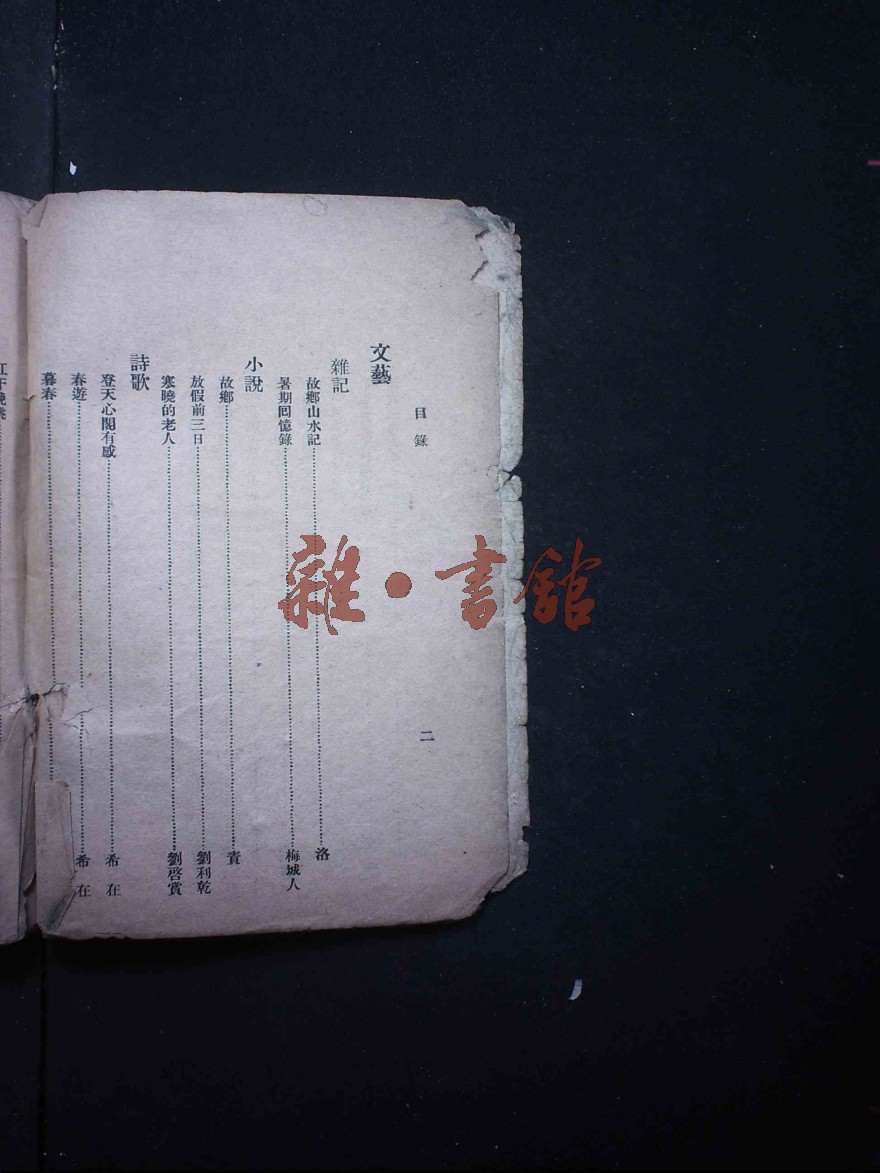 目錄
二
文藝
雜記
故鄉山水記 洛
暑期回憶錄 梅城人
小說
故鄉 責
放假前三日 劉利乾
寒曉的老人 劉啓賞
詩歌
登天心閣有感 希在
春遊 希在
暮春
雜·書館